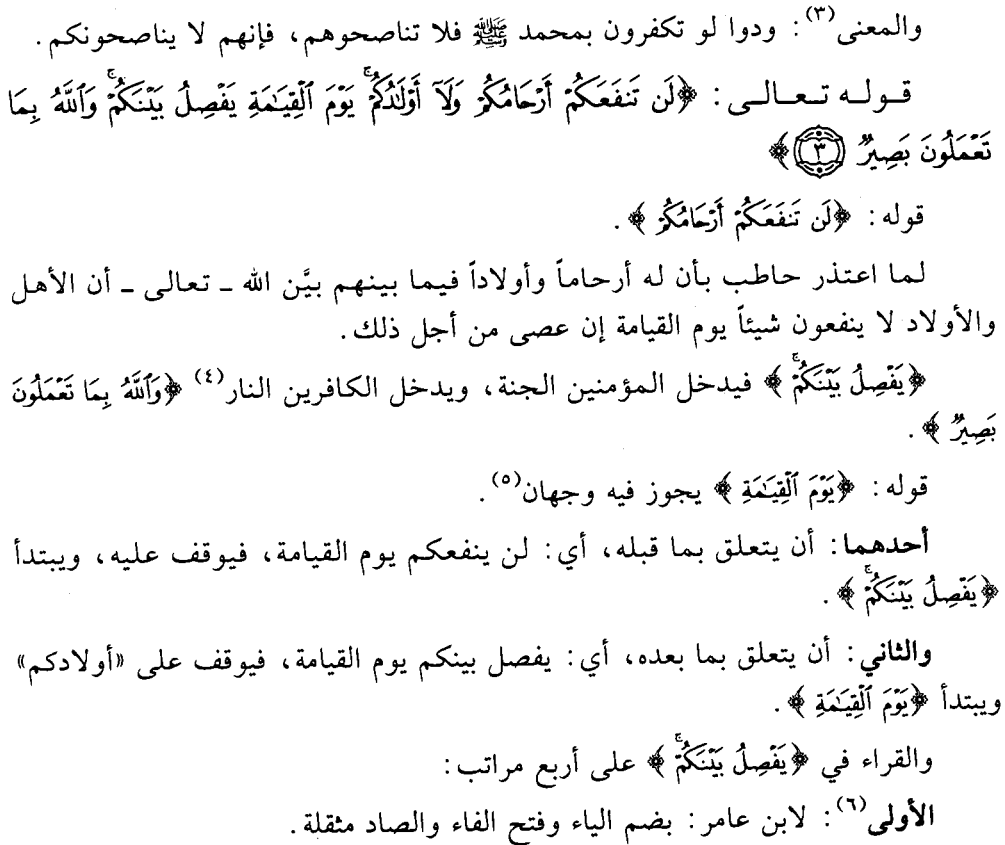 والمعنى(٣): ودوا لو تكفرون بمحمد ﷺ فلا تناصحوهم، فإنهم لا يناصحونكم.
قوله تعالى: ﴿لَن تَنفَعَكُمۡ أَرۡحَامُكُمۡ وَلَآ أَوۡلَٰدُكُمۡۚ يَوۡمَ ٱلۡقِيَٰمَةِ يَفۡصِلُ بَيۡنَكُمۡۚ وَٱللَّهُ بِمَا
تَعۡمَلُونَ بَصِيرٌ ٣﴾
قوله: ﴿لَن تَنفَعَكُمۡ أَرۡحَامُكُمۡ﴾.
لما اعتذر حاطب بأن له أرحاماً وأولاداً فيما بينهم بيَّن الله ـ تعالى ـ أن الأهل
والأولاد لا ينفعون شيئاً يوم القيامة إن عصى من أجل ذلك.
﴿يَفۡصِلُ بَيۡنَكُمۡۚ﴾ فيدخل المؤمنين الجنة، ويدخل الكافرين النار(٤) ﴿وَٱللَّهُ بِمَا تَعۡمَلُونَ
بَصِيرٌ﴾.
قوله: ﴿يَوۡمَ ٱلۡقِيَٰمَةِ﴾ يجوز فيه وجهان(٥).
أحدهما: أن يتعلق بما قبله، أي: لن ينفعكم يوم القيامة، فيوقف عليه، ويبتدأ
﴿يَفۡصِلُ بَيۡنَكُمۡۚ﴾.
والثاني: أن يتعلق بما بعده، أي: يفصل بينكم يوم القيامة، فيوقف على «أولادكم»
ويبتدأ ﴿يَوۡمَ ٱلۡقِيَٰمَةِ﴾.
والقراء في ﴿يَفۡصِلُ بَيۡنَكُمۡۚ﴾ على أربع مراتب:
الأولى(٦): لابن عامر: بضم الياء وفتح الفاء والصاد مثقلة.